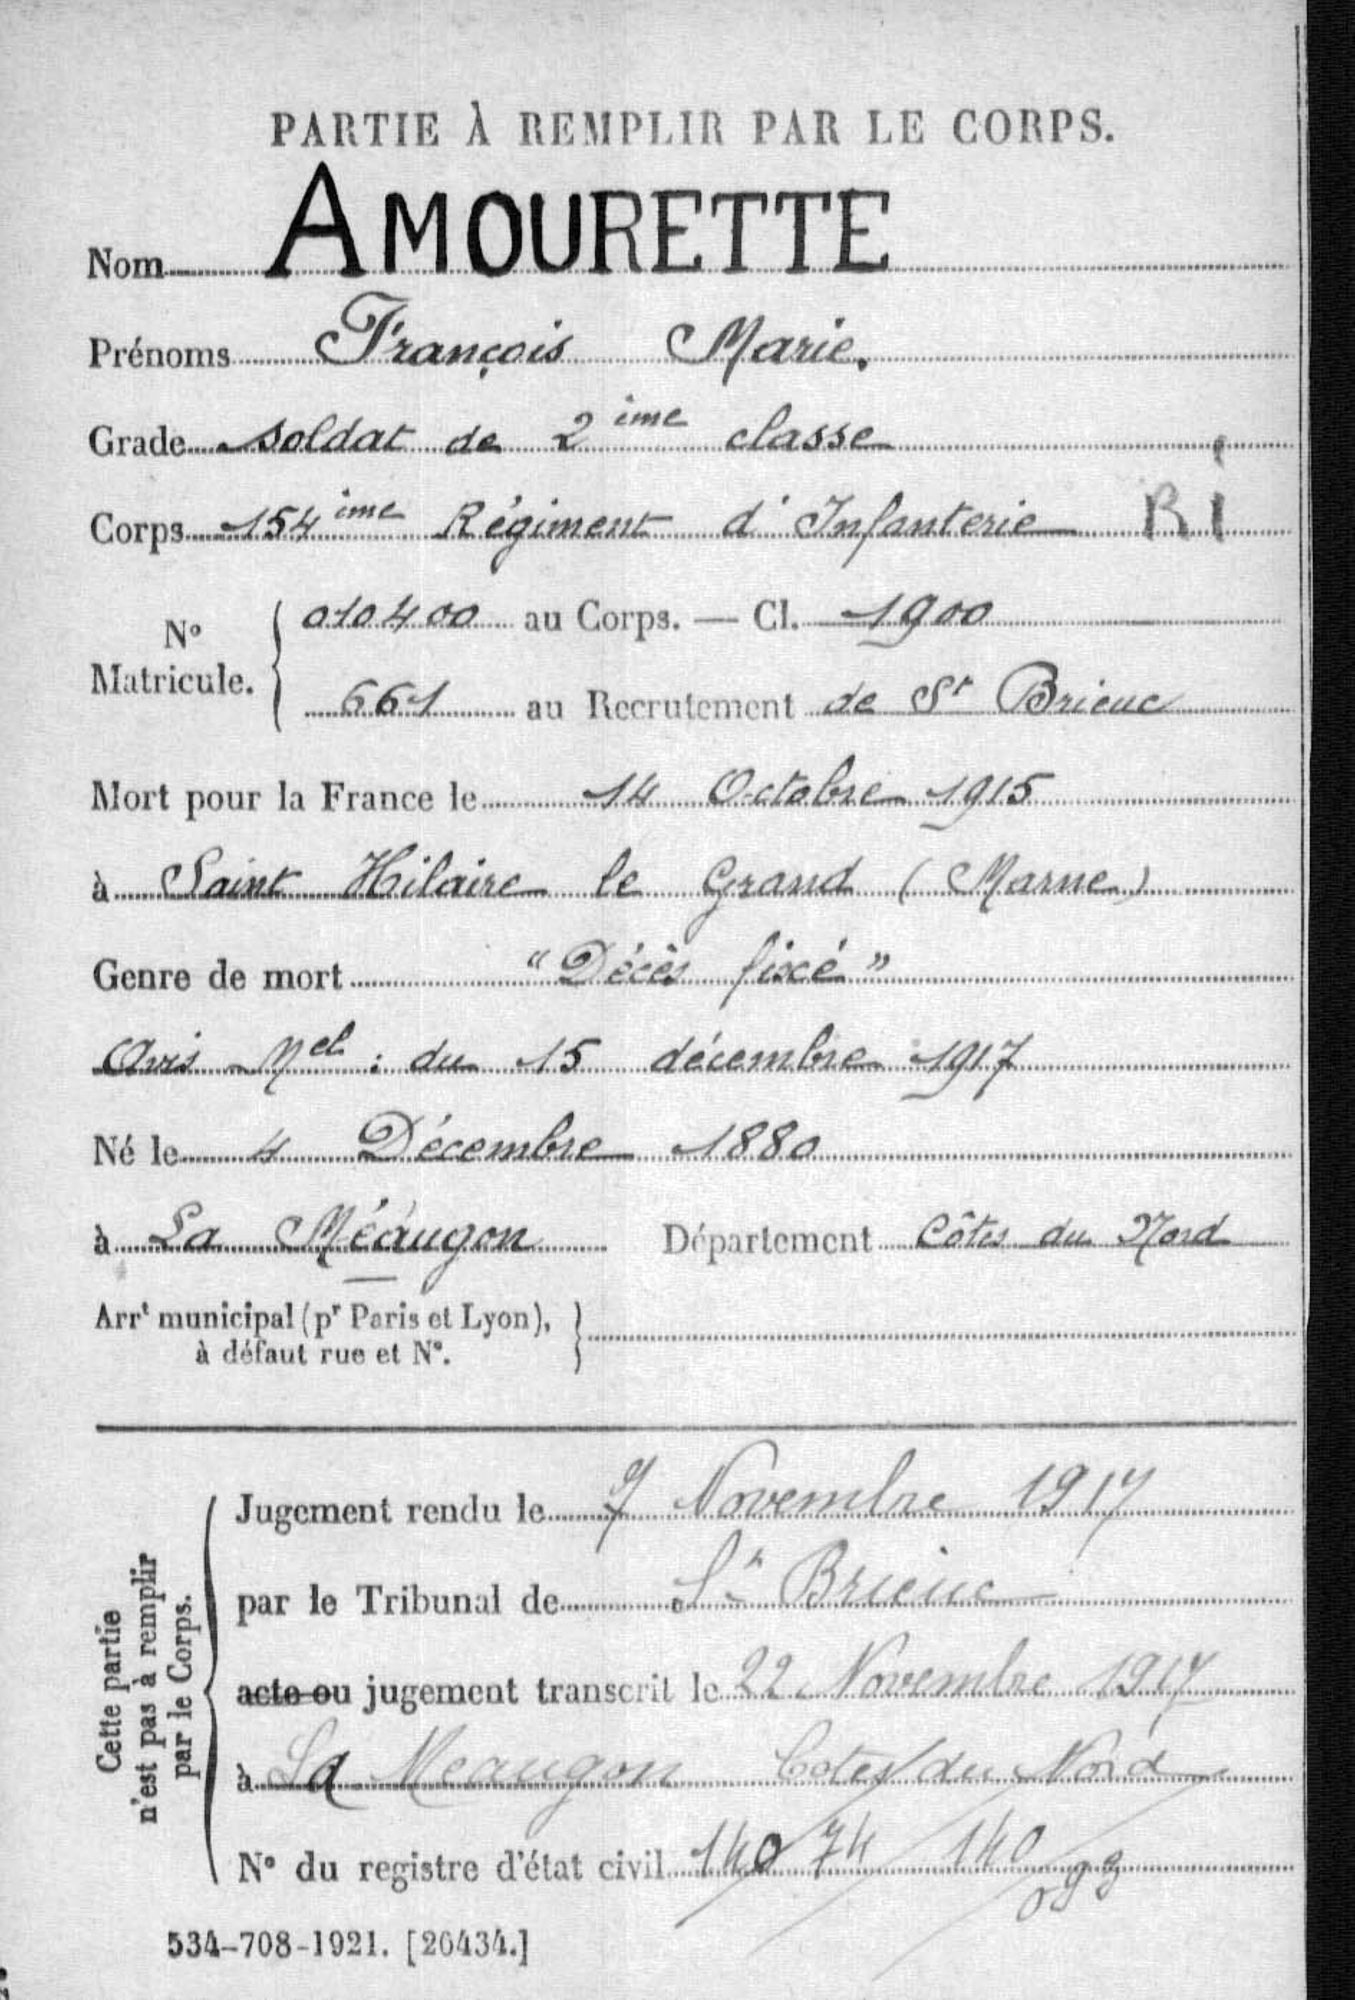 PARTIE À REMPLIR PAR LE CORPS.
Nom AMOURETTE
Prénoms François Marie.
Grade soldat de 2ième classe
Corps 154ième Régiment d'Infanterie RI
N° Matricule. { 010400 au Corps. — Cl. 1900
661 au Recrutement de St Brieuc
Mort pour la France le 14 Octobre 1915
à Saint Hilaire le Grand (Marne)
Genre de mort "Décès fixé"
Avis Mel : du 15 décembre 1917
Né le 4 Décembre 1880
à La Méaugon Département Côtes du Nord
Arrt municipal (pr Paris et Lyon), à défaut rue et N°. }
Cette partie n'est pas à remplir par le Corps.
Jugement rendu le 7 Novembre 1917
par le Tribunal de St Brieuc
acte ou jugement transcrit le 22 Novembre 1917
à La Meaugon Cotes du Nord
N° du registre d'état civil 140/74/140/093
534-708-1921. [26434.]